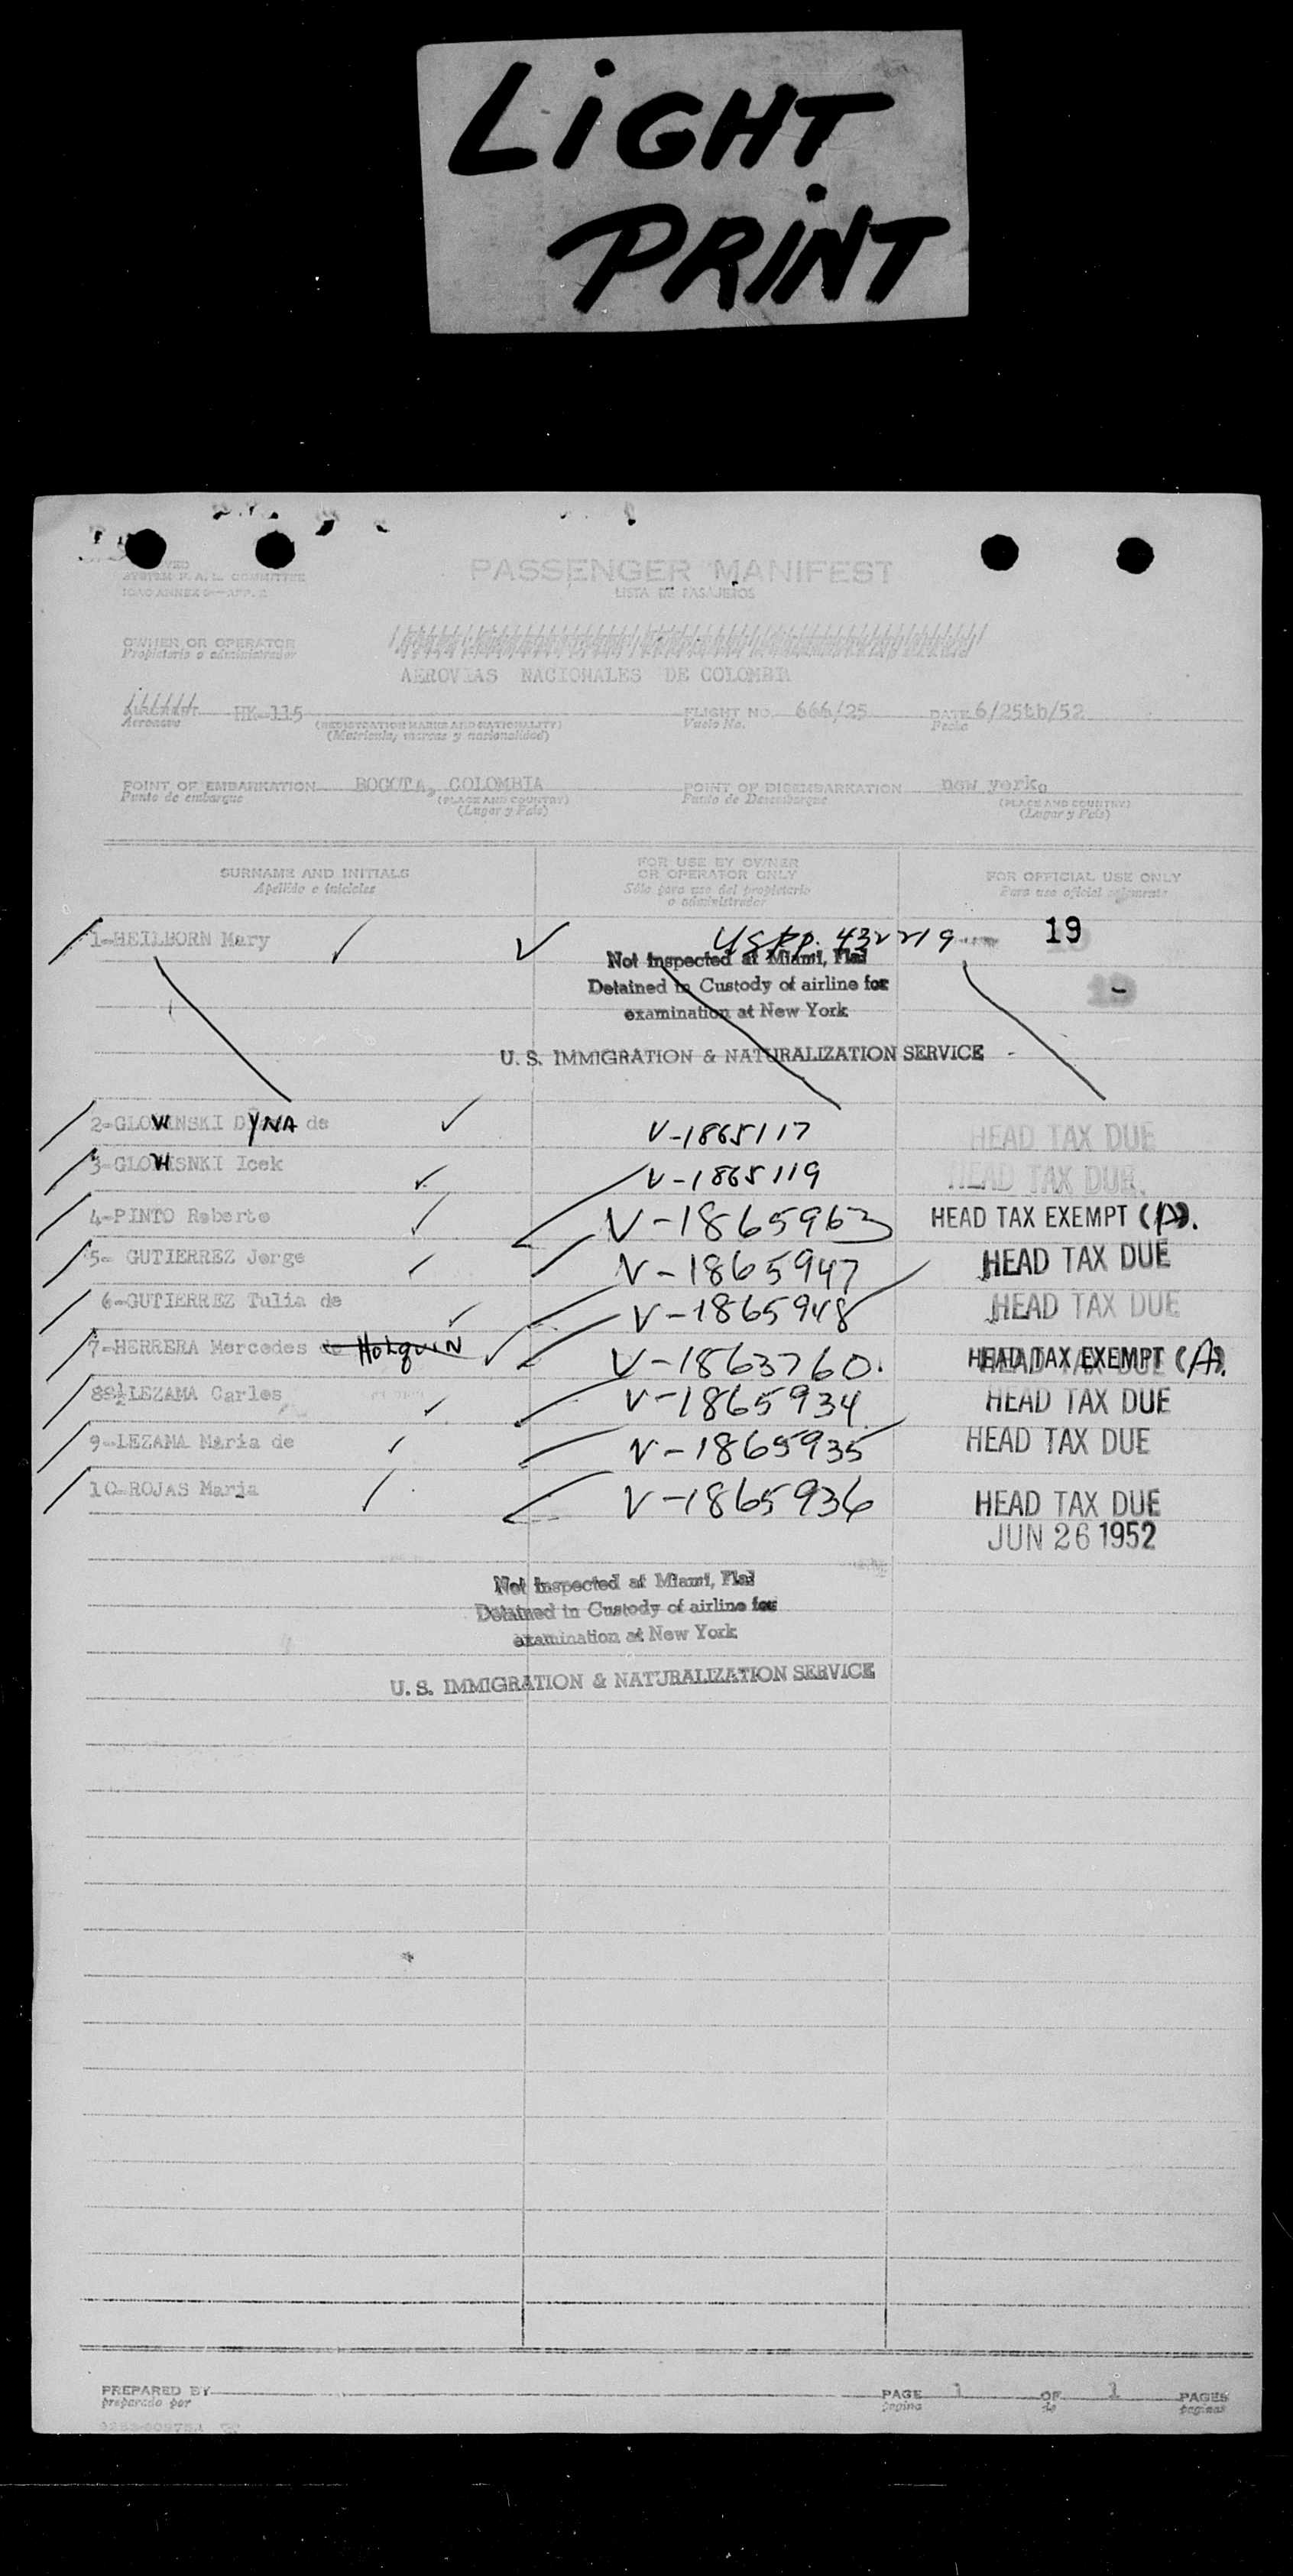 LIGHT
PRINT
PASSENGER MANIFEST
LISTA DE PASAJEROS
SYSTEM F. A. L. COMMITTEE
ICAO ANNEX 9—APP. 2
OWNER OR OPERATOR
Propietario o administrador
AEROVIAS NACIONALES DE COLOMBIA
AIRCRAFT HK-115 FLIGHT NO. 666/25 DATE 6/25th/52
Aeronave (REGISTRATION MARKS AND NATIONALITY) Vuelo No. Fecha
(Matricula, marcas y nacionalidad)
POINT OF EMBARKATION BOGOTA, COLOMBIA POINT OF DISEMBARKATION new york.
Punto de embarque (PLACE AND COUNTRY) Punto de Desembarque (PLACE AND COUNTRY)
(Lugar y País) (Lugar y País)
SURNAME AND INITIALS FOR USE BY OWNER OR OPERATOR ONLY FOR OFFICIAL USE ONLY
Apellido e iniciales Sólo para uso del propietario o administrador Para uso oficial solamente
1-HEILBORN Mary USPP. 432219 19
Not inspected at Miami, Fla.
Detained in Custody of airline for
examination at New York
U. S. IMMIGRATION & NATURALIZATION SERVICE
2-GLOWINSKI DYNA de V-1865117 HEAD TAX DUE
3-GLOWISNKI Icek V-1865119 HEAD TAX DUE.
4-PINTO Roberto V-1865963 HEAD TAX EXEMPT (A).
5- GUTIERREZ Jorge V-1865947 HEAD TAX DUE
6-GUTIERREZ Tulia de V-1865948 HEAD TAX DUE
7-HERRERA Mercedes de Holguin V-1863760. HEAD TAX EXEMPT (A).
8&½LEZAMA Carlos V-1865934 HEAD TAX DUE
9-LEZAMA Maria de V-1865935 HEAD TAX DUE
10-ROJAS Maria V-1865936 HEAD TAX DUE
JUN 26 1952
Not inspected at Miami, Fla.
Detained in Custody of airline for
examination at New York
U. S. IMMIGRATION & NATURALIZATION SERVICE
PREPARED BY PAGE 1 OF 1 PAGES
preparado por pagina de paginas